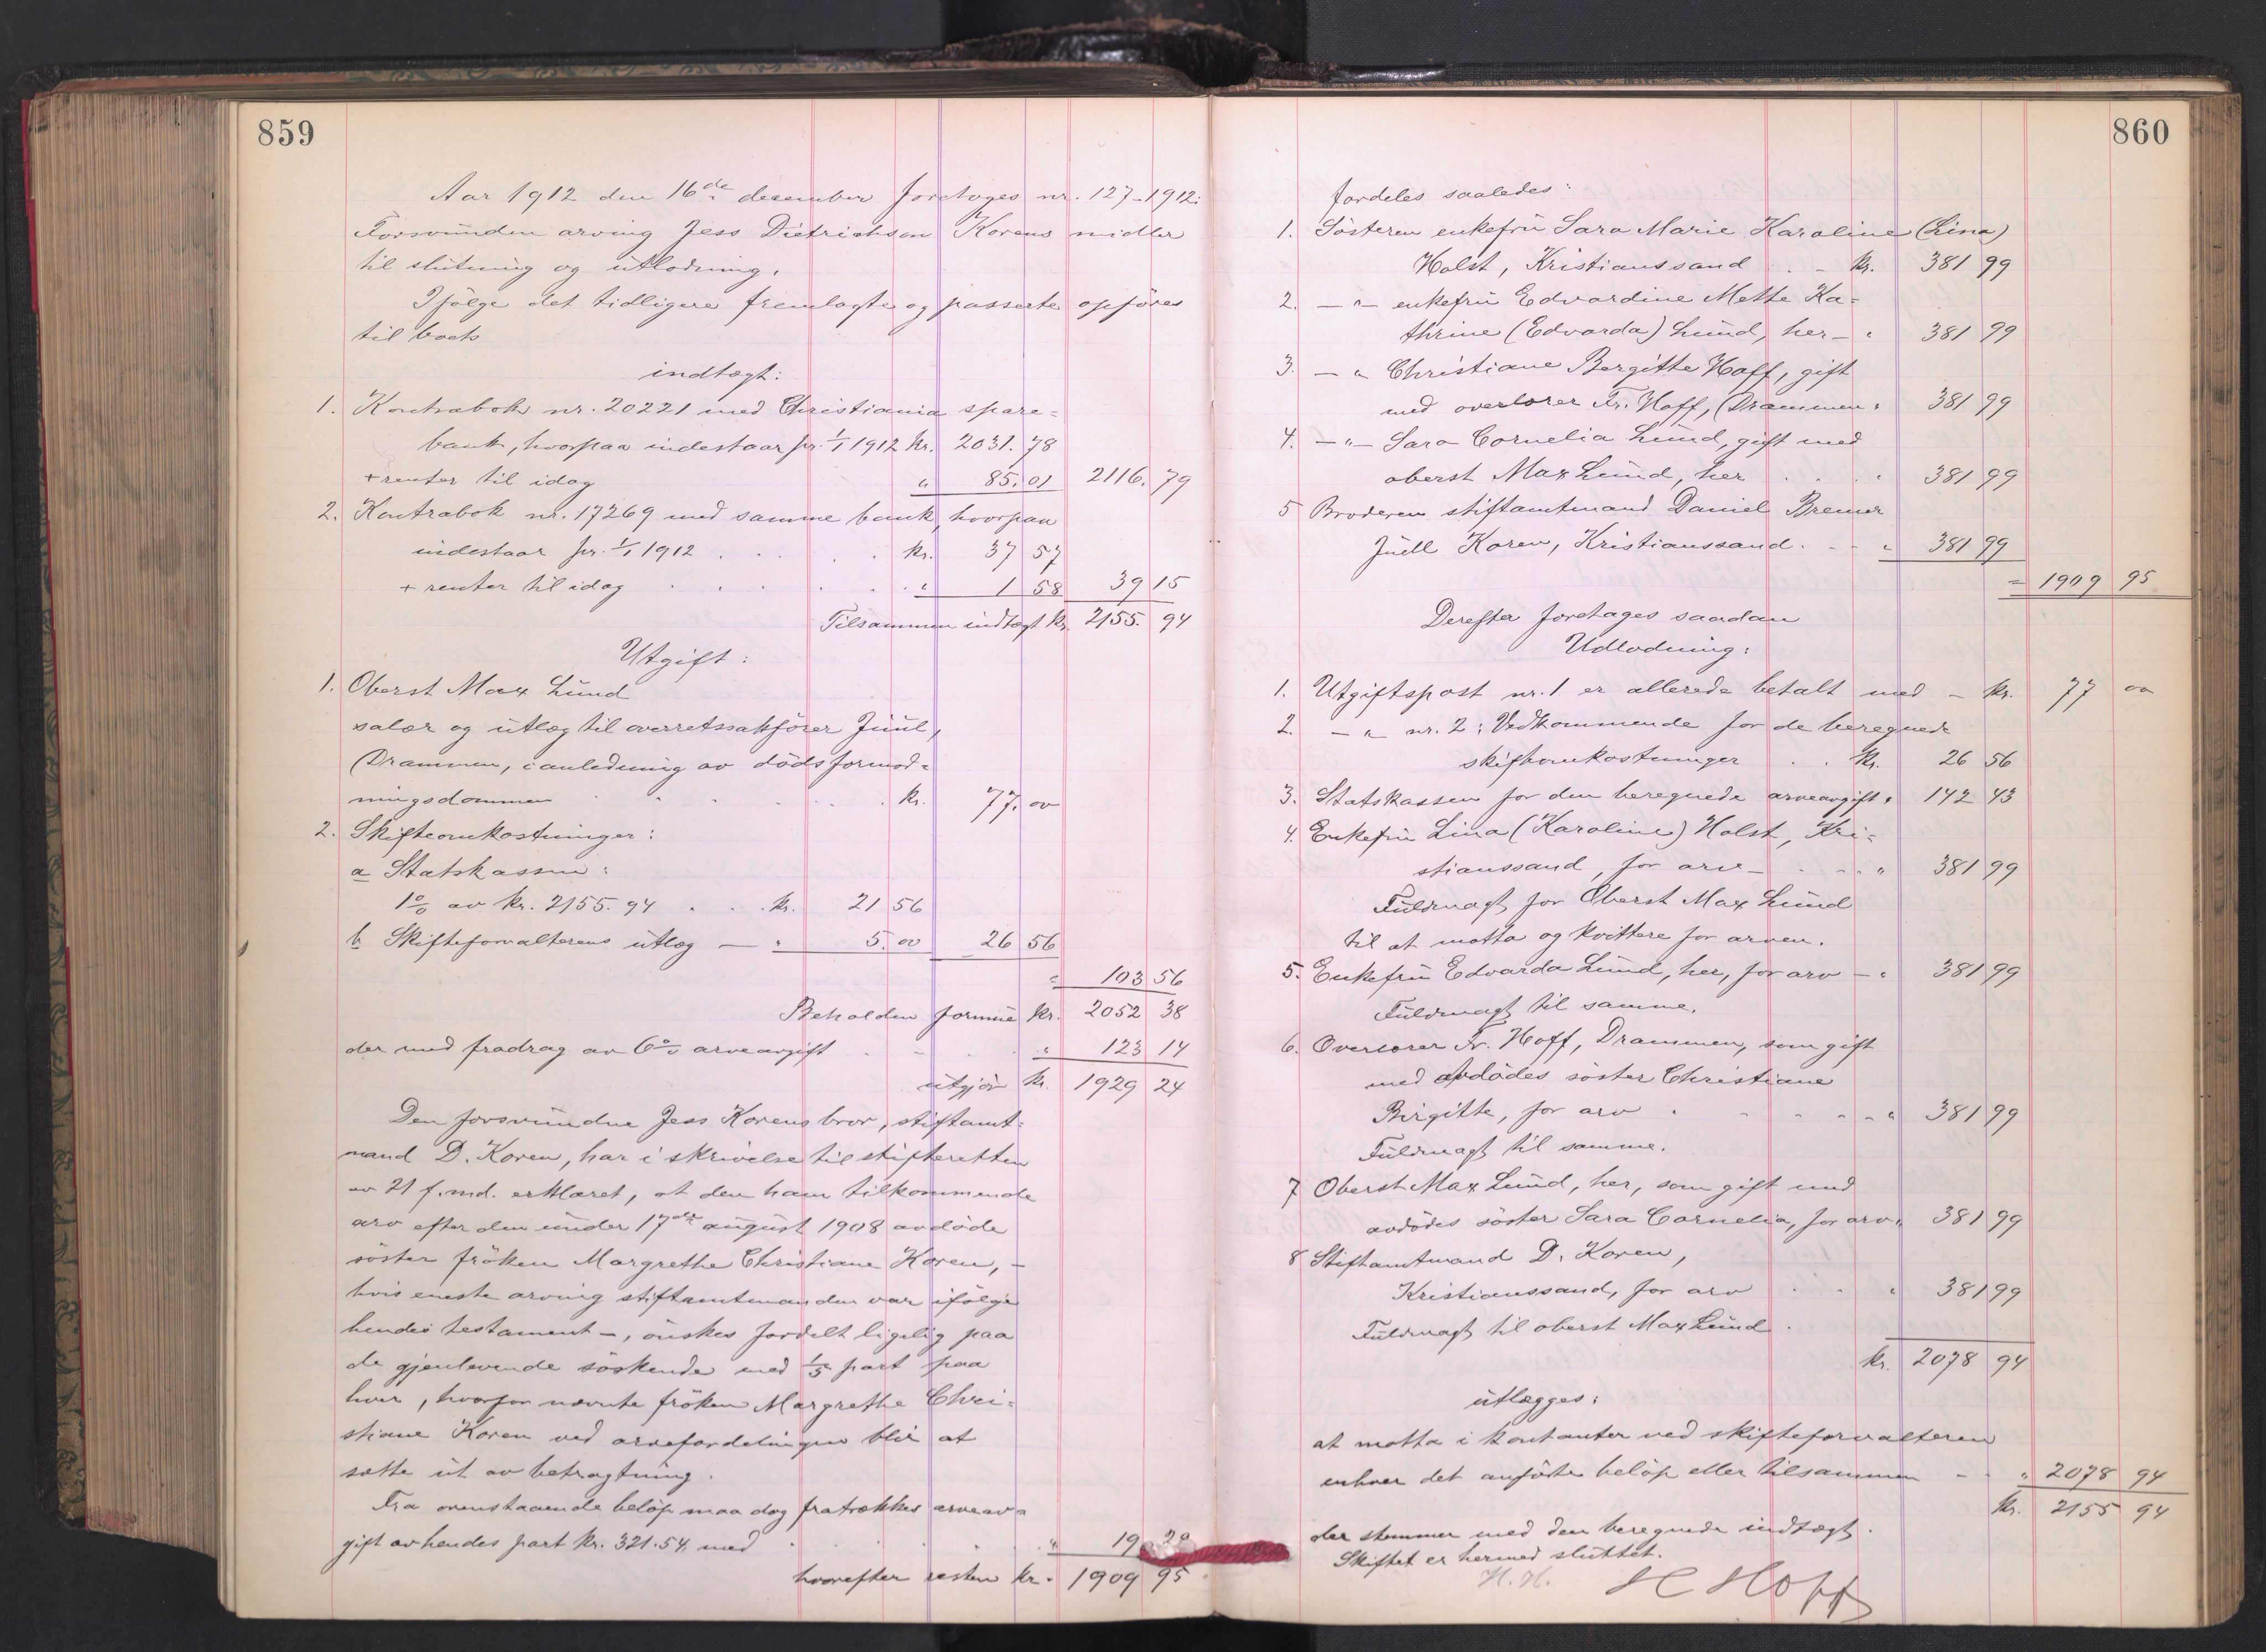 859
Aar 1912 den 16de desember foretoges nr. 127-1912:
Forsvunden arving Jess Dietrichson Korens midler
til slutning og utlodning.
Ifölge det tidligere fremlagte og passerte opföres
til boets
indtægt:
1. Kontrabok nr. 20221 med Christiania spare=
bank, hvorpaa indestaar pr. 1/1 1912 kr. 2031.78
+ renter til idag " 85.01 2116.79
2. Kontrabok nr. 17269 med samme bank, hvorpaa
indestaar pr. 1/1 1912 . . . . kr. 37 57
+ renter til idag . . . . . " 1 58 39 15
Tilsammen indtægt kr. 2155. 94
Utgift:
1. Oberst Max Lund
salær og utlæg til overretssakförer Juul,
Drammen, i anledning av dödsformod=
ningsdommen . . . . . kr. 77.00
2. Skifteomkostninger:
a Statskassen:
1% av kr. 2155.94 . . . kr. 21 56
b Skifteforvalterens utlæg — " 5.00 26 56
= 103 56
Beholden formue kr. 2052 38
der med fradrag av 6% arveavgift . . . " 123 14
utgjör kr. 1929 24
Den forsvundne Jess Korens bror, stiftamt=
mand D. Koren, har i skrivelse til skifteretten
av 21 f. md. erklæret, at den ham tilkommende
arv efter den under 17de august 1908 avdöde
söster fröken Margrethe Christiane Koren, -
hvis eneste arving stiftamtmanden var ifölge
hendes testament -, önskes fordelt ligelig paa
de gjenlevende söskende med 1/5 part paa
hver, hvorfor nævnte fröken Margrethe Chri=
stiane Koren ved arvefordelingen blir at
sætte ut av betragtning.
Fra ovenstaaende belöp maa dog fratrækkes arveav=
gift av hendes part kr. 321.54. med . . . . " 19 29
hvorefter resten kr. 1909 95
860
fordeles saaledes:
1. Søsteren enkefru Sara Marie Karoline (Lina)
Holst, Kristianssand . . - kr. 381 99
2. — " — enkefru Edvardine Mette Ka=
thrine (Edvarda) Lund, her — " 381 99
3. — " Christiane Bergitte Hoff, gift
med overlærer Fr. Hoff, Drammen " 381 99
4. — " — Sara Cornelia Lund, gift med
oberst Max Lund, her . . . " 381 99
5 Broderen stiftamtmand Daniel Bremer
Juell Koren, Kristianssand . - - " 381 99
= 1909 95
Derefter foretages saadan
Udlodning:
1. Utgiftspost nr. 1 er allerede betalt med - kr. 77 00
2. — " — nr. 2: Vedkommende for de beregnede
skifteomkostninger . . kr. 26 56
3. Statskassen for den beregnede arveavgift " 142 43
4. Enkefru Lina (Karoline) Holst, Kri=
stianssand, for arv — . . . " 381 99
Fuldmagt for Oberst Max Lund
til at motta og kvittere for arven.
5. Enkefru Edvarda Lund, her, for arv — " 381 99
Fuldmagt til samme.
6. Overlærer Fr. Hoff, Drammen, som gift
med avdödes söster Christiane
Birgitte, for arv . - - - - " 381 99
Fuldmagt til samme.
7 Oberst Max Lund, her, som gift med
avdödes söster Sara Cornelia, for arv " 381 99
8 Stiftamtmand D. Koren,
Kristianssand, for arv . . " 381 99
Fuldmagt til oberst Max Lund.
kr. 2078 94
utlægges:
at motta i kontanter ved skifteforvalteren
enhver det anförte belöp eller tilsammen - - " 2078 94
kr. 2155 94
der stemmer med den beregnede indtægt.
Skiftet er hermed sluttet.
H. H. H Hoff